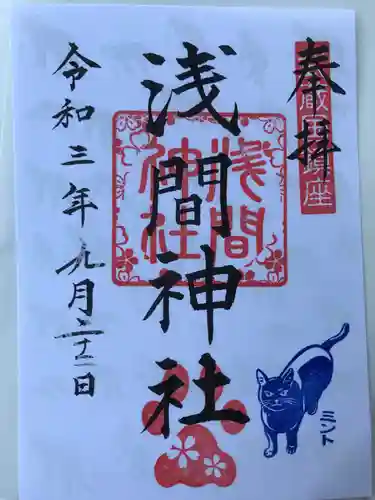 奉拝
浅間神社
浅間
神社
令和三年九月二十二日
ミント